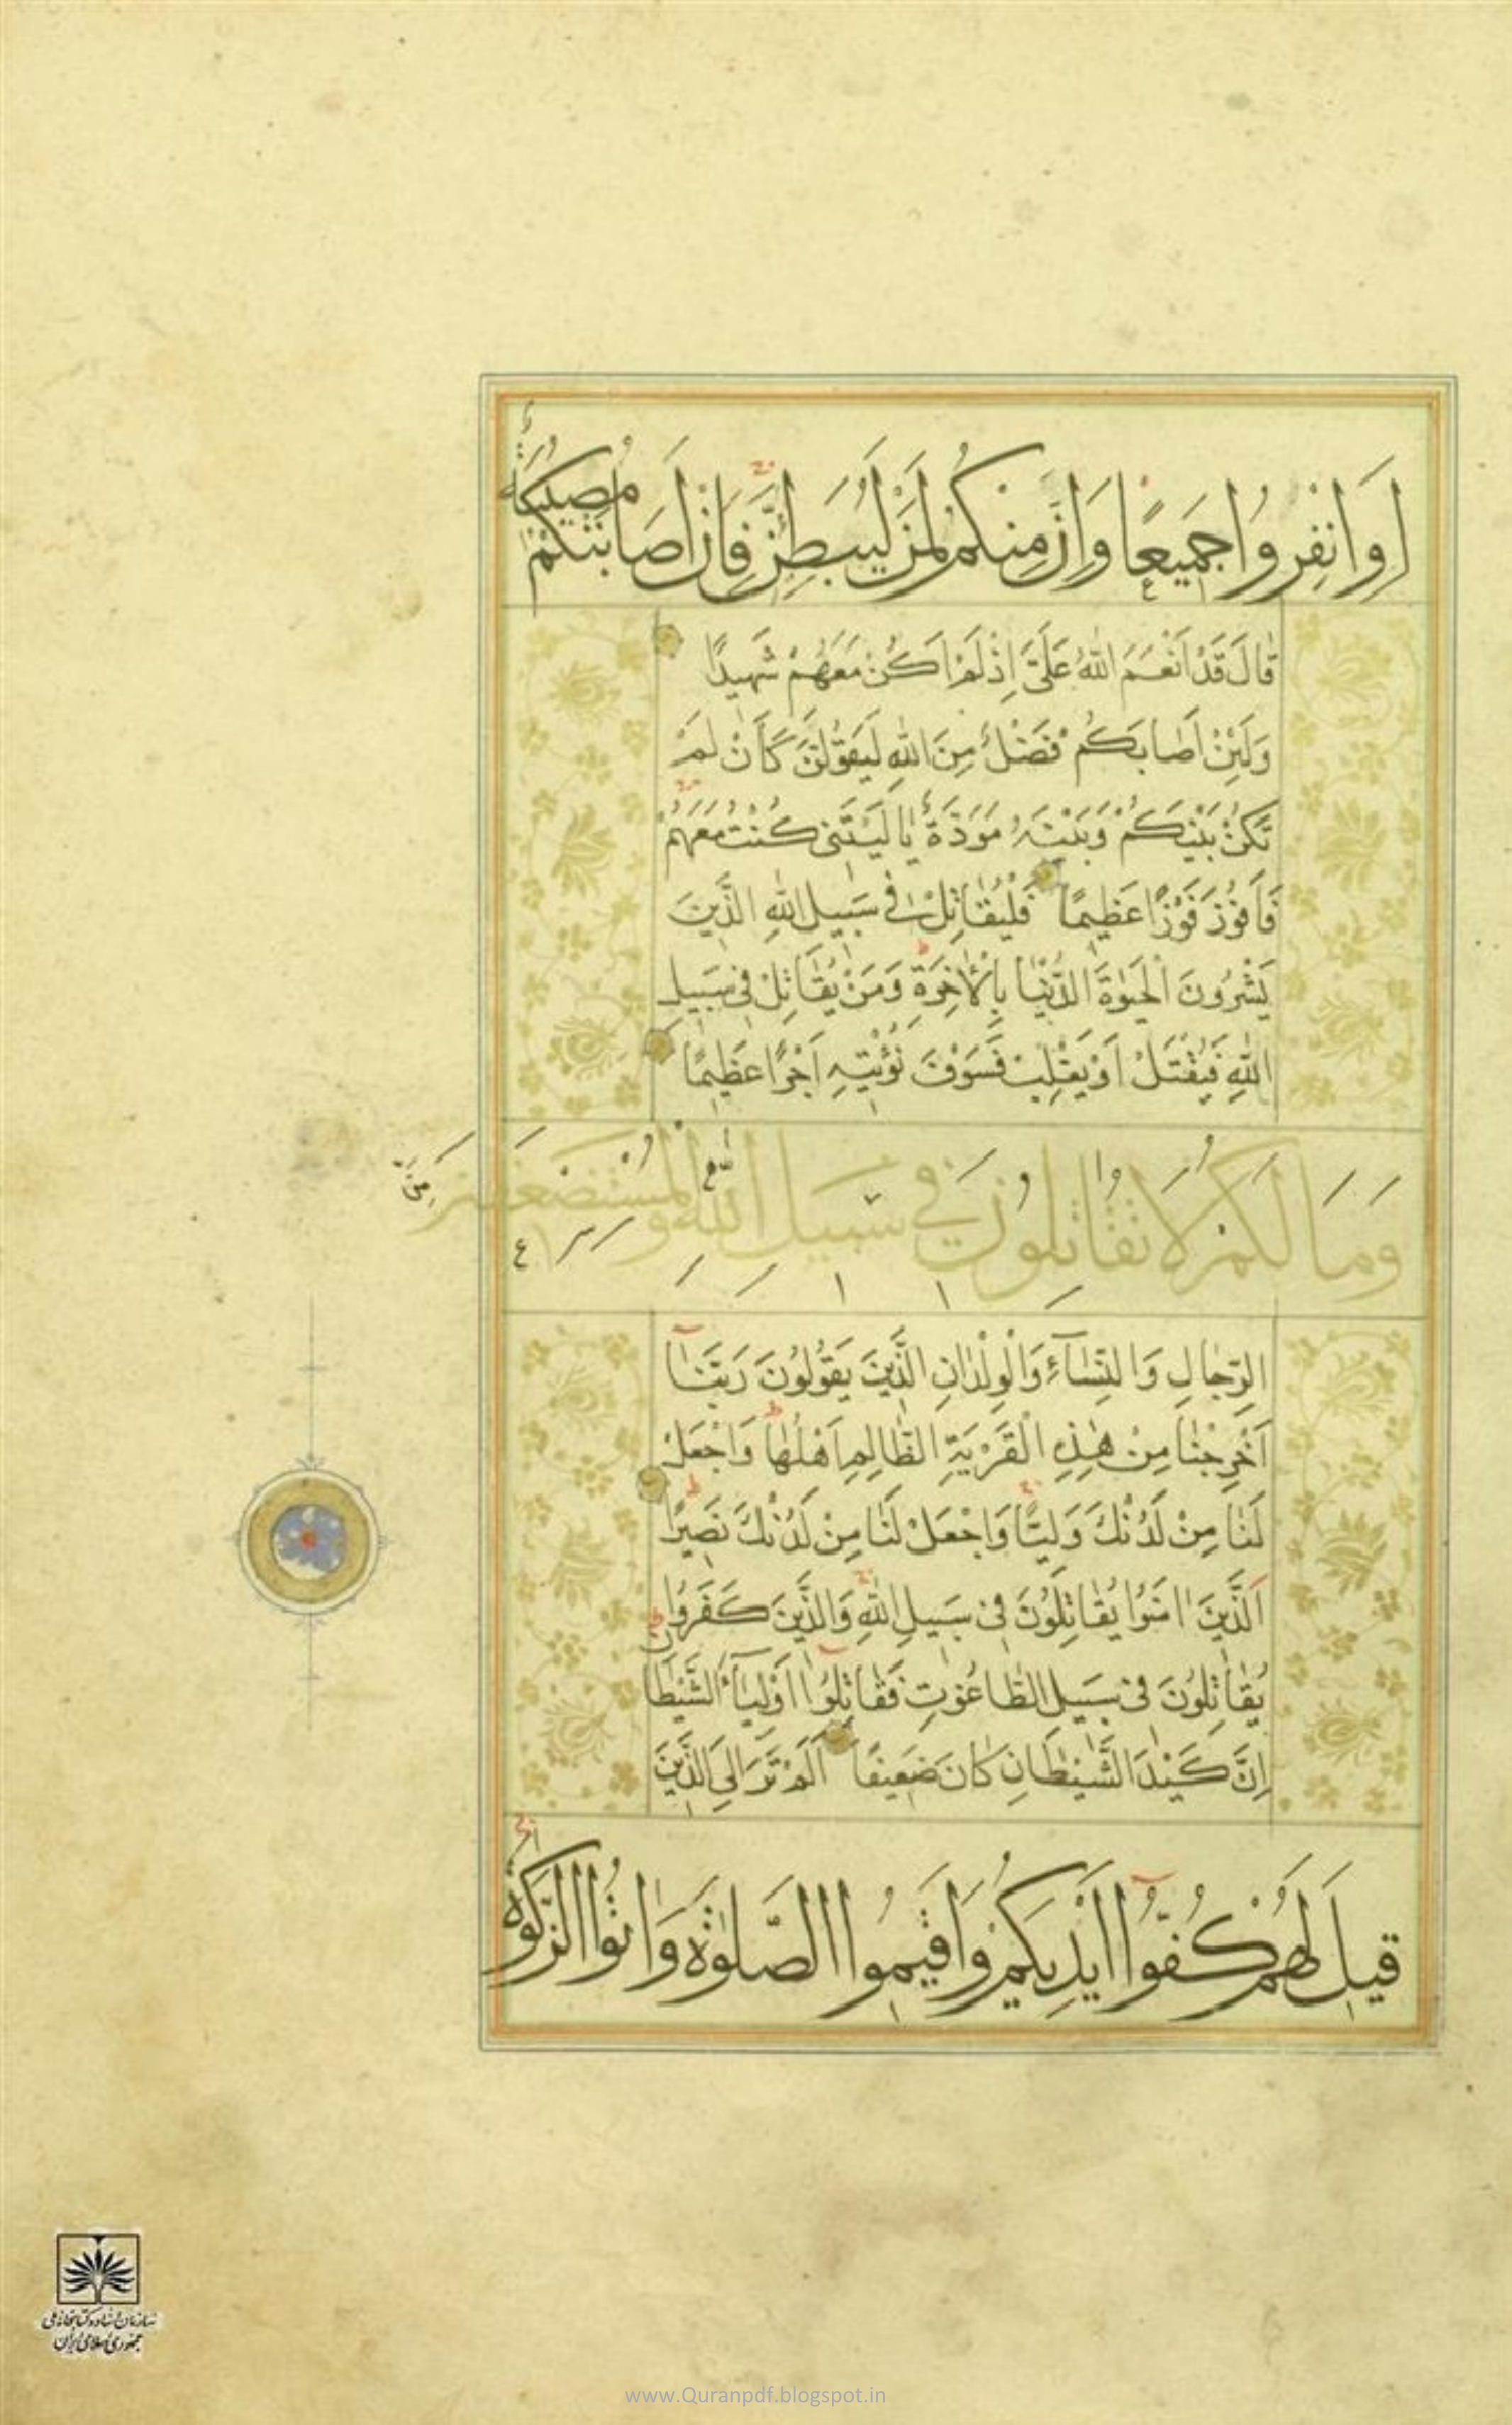 اَوِ انْفِرُوا جَمِيعًا وَاِنَّ مِنْكُمْ لَمَنْ لَيُبَطِّئَنَّ فَاِنْ اَصَابَتْكُمْ مُصِيبَةٌ
قَالَ قَدْ اَنْعَمَ اللّٰهُ عَلَيَّ اِذْ لَمْ اَكُنْ مَعَهُمْ شَهِيدًا
وَلَئِنْ اَصَابَكُمْ فَضْلٌ مِنَ اللّٰهِ لَيَقُولَنَّ كَأَنْ لَمْ
تَكُنْ بَيْنَكُمْ وَبَيْنَهُ مَوَدَّةٌ يَا لَيْتَنِي كُنْتُ مَعَهُمْ
فَأَفُوزَ فَوْزًا عَظِيمًا فَلْيُقَاتِلْ فِي سَبِيلِ اللّٰهِ الَّذِينَ
يَشْرُونَ الْحَيٰوةَ الدُّنْيَا بِالْآخِرَةِ وَمَنْ يُقَاتِلْ فِي سَبِيلِ
اللّٰهِ فَيُقْتَلْ اَوْ يَغْلِبْ فَسَوْفَ نُؤْتِيهِ اَجْرًا عَظِيمًا
وَمَا لَكُمْ لَا تُقَاتِلُونَ فِي سَبِيلِ اللّٰهِ وَالْمُسْتَضْعَفِينَ مِنَ
الرِّجَالِ وَالنِّسَآءِ وَالْوِلْدَانِ الَّذِينَ يَقُولُونَ رَبَّنَا
اَخْرِجْنَا مِنْ هٰذِهِ الْقَرْيَةِ الظَّالِمِ اَهْلُهَا وَاجْعَلْ
لَنَا مِنْ لَدُنْكَ وَلِيًّا وَاجْعَلْ لَنَا مِنْ لَدُنْكَ نَصِيرًا
اَلَّذِينَ اٰمَنُوا يُقَاتِلُونَ فِي سَبِيلِ اللّٰهِ وَالَّذِينَ كَفَرُوا
يُقَاتِلُونَ فِي سَبِيلِ الطَّاغُوتِ فَقَاتِلُوا اَوْلِيَآءَ الشَّيْطَانِ
اِنَّ كَيْدَ الشَّيْطَانِ كَانَ ضَعِيفًا اَلَمْ تَرَ اِلَى الَّذِينَ
قِيلَ لَهُمْ كُفُّوا اَيْدِيَكُمْ وَاَقِيمُوا الصَّلٰوةَ وَاٰتُوا الزَّكٰوةَ
سازمان اسناد و کتابخانه ملی
جمهوری اسلامی ایران
www.Quranpdf.blogspot.in